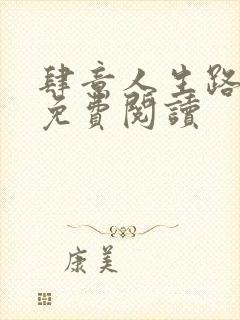 肆意人生路
免費閱讀
康美